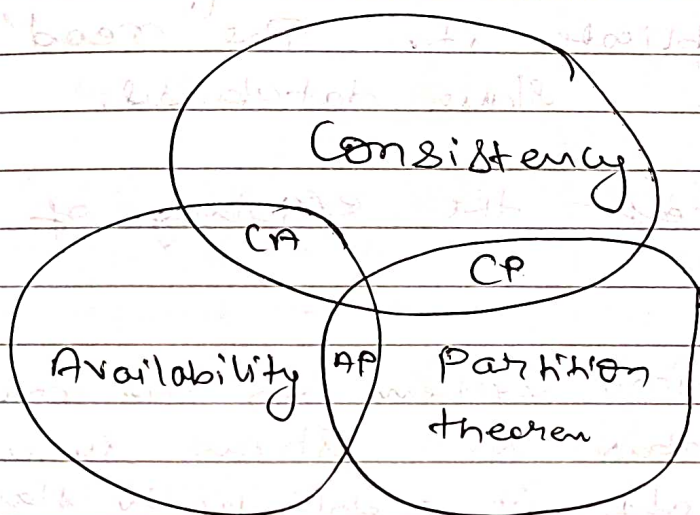 Consistency
CA
CP
Availability
AP
Partition
theorem